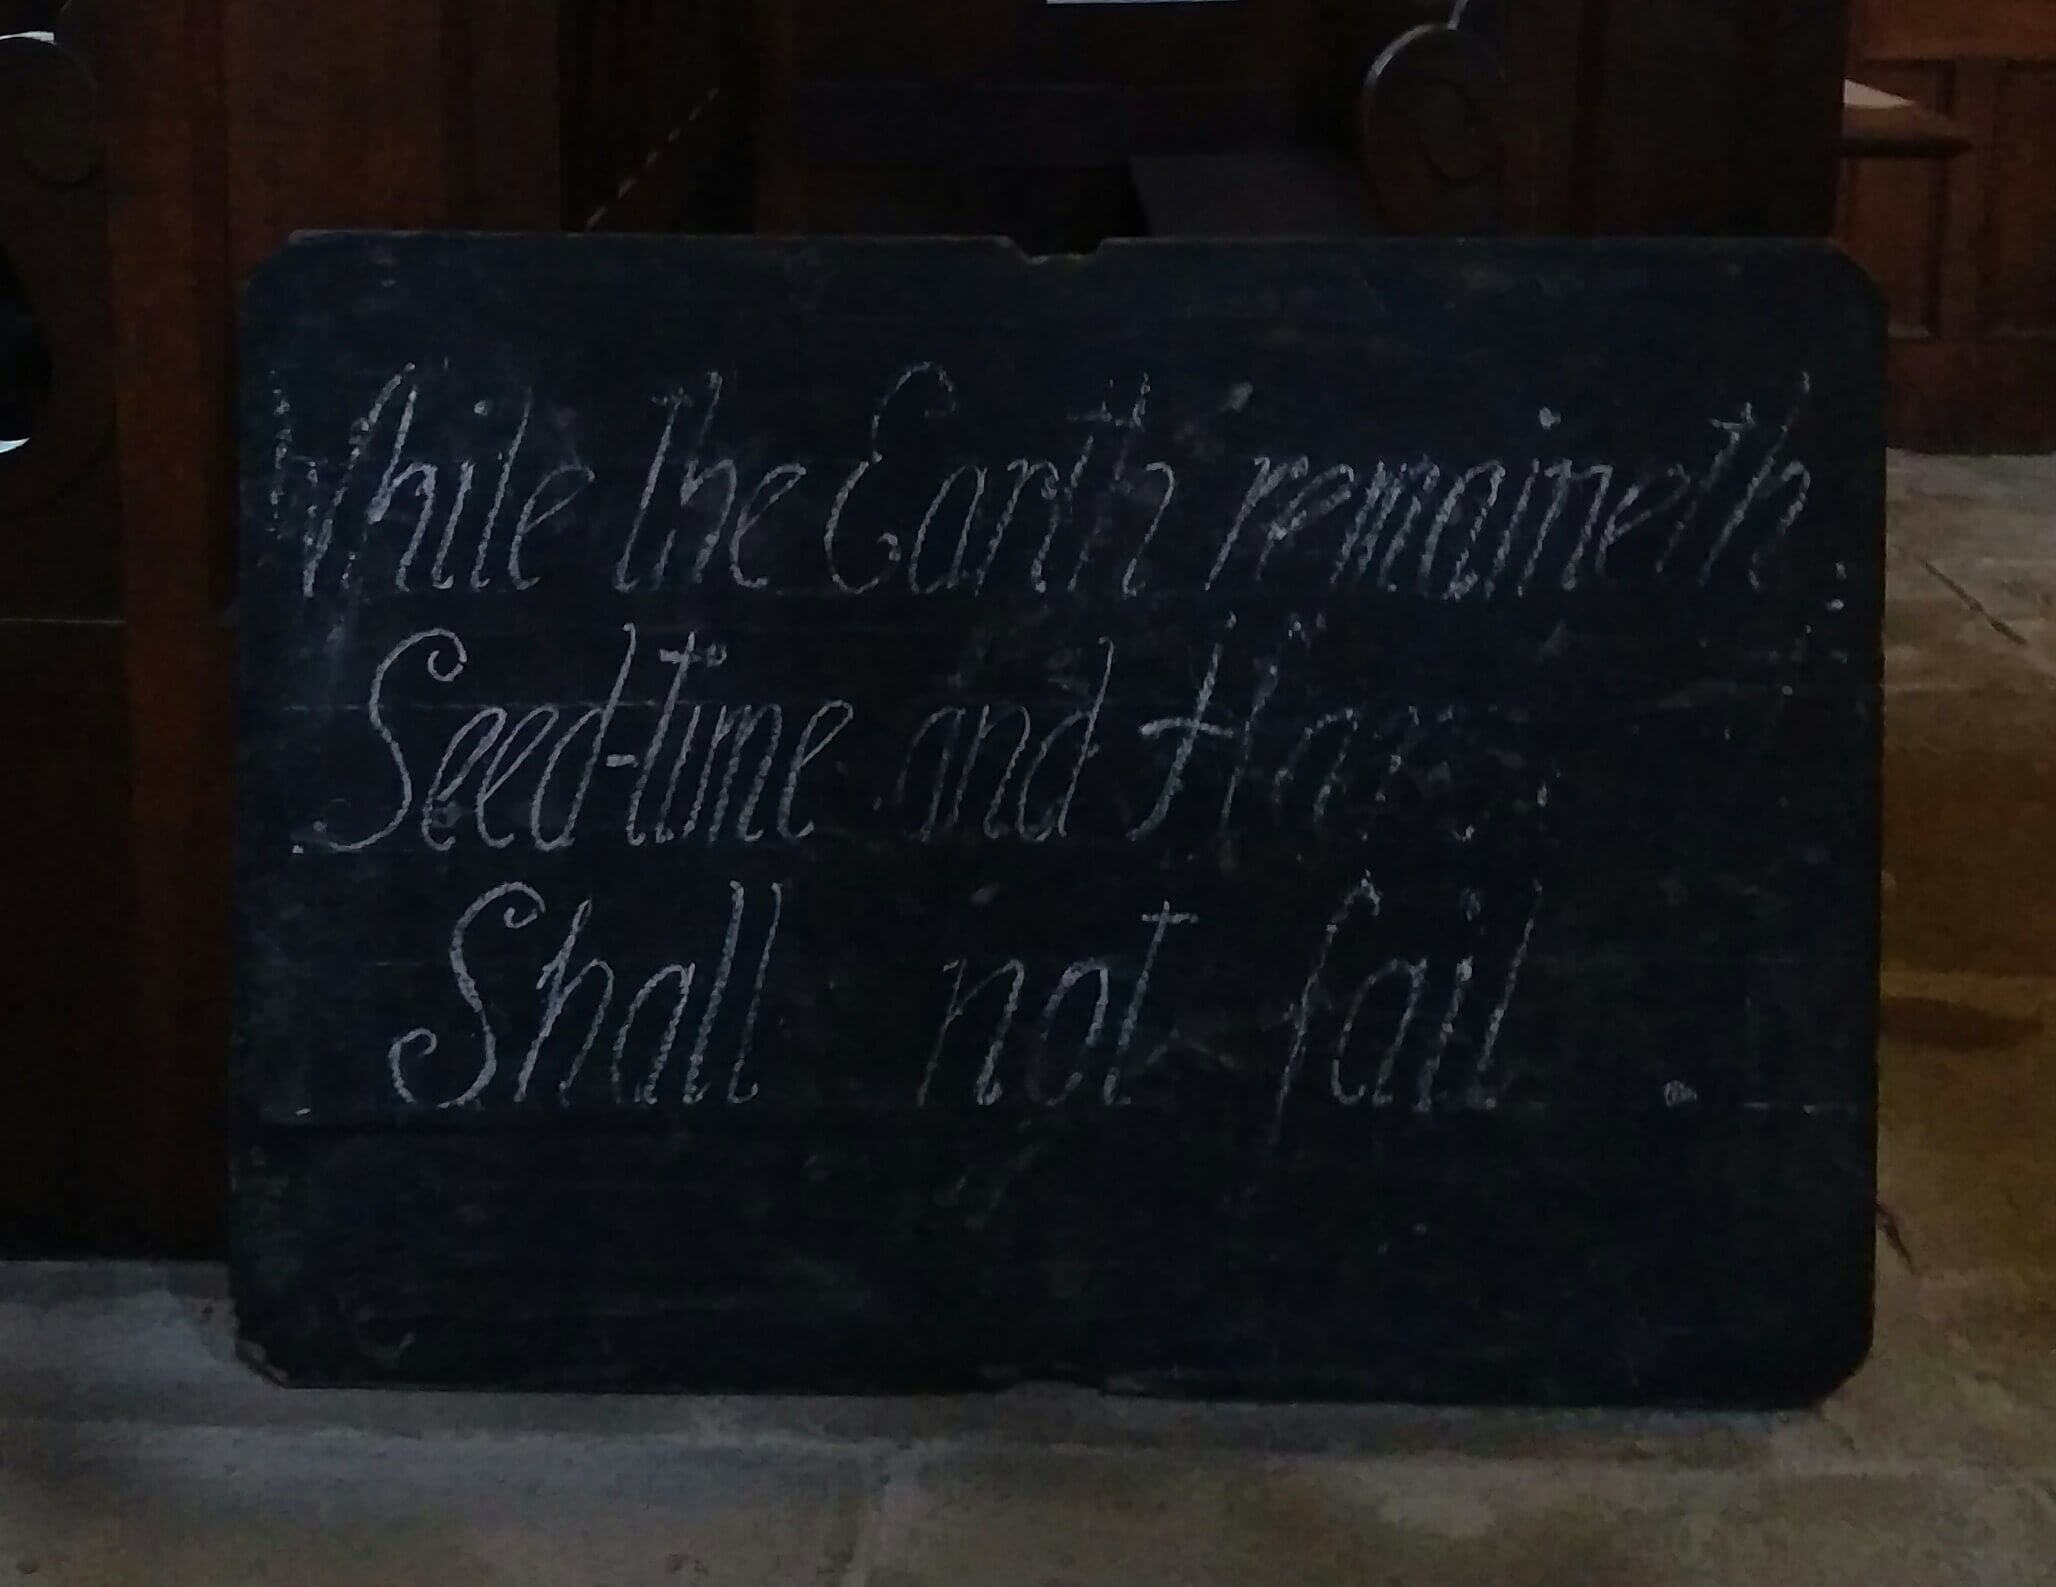 While the Earth remaineth:
Seed-time and
Shall not fail.